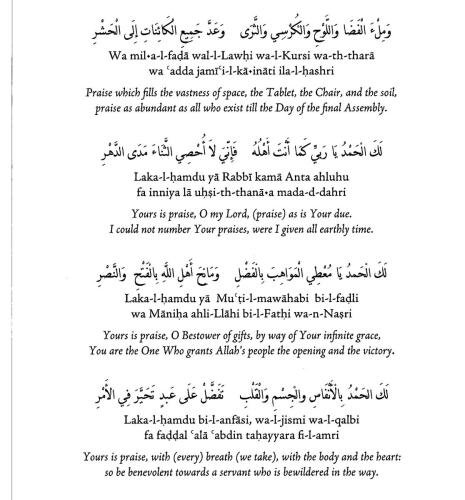 وَمِلْءَ الْفَضَا وَاللَّوْحِ وَالْكُرْسِي وَالثَّرَى وَعَدَّ جَمِيعِ الْكَائِنَاتِ إِلَى الْحَشْرِ
Wa mil•a-l-faḍā wal-l-Lawḥi wa-l-Kursi wa-th-tharā
wa ʿadda jamīʿi-l-kā•ināti ila-l-ḥashri
Praise which fills the vastness of space, the Tablet, the Chair, and the soil,
praise as abundant as all who exist till the Day of the final Assembly.
لَكَ الْحَمْدُ يَا رَبِّي كَمَا أَنْتَ أَهْلُهُ فَإِنِّيَ لَا أُحْصِي الثَّنَاءَ مَدَى الدَّهْرِ
Laka-l-ḥamdu yā Rabbī kamā Anta ahluhu
fa inniya lā uḥṣi-th-thanā•a mada-d-dahri
Yours is praise, O my Lord, (praise) as is Your due.
I could not number Your praises, were I given all earthly time.
لَكَ الْحَمْدُ يَا مُعْطِي الْمَوَاهِبَ بِالْفَضْلِ وَمَانِحَ أَهْلِ اللَّهِ بِالْفَتْحِ وَالنَّصْرِ
Laka-l-ḥamdu yā Muʿṭi-l-mawāhabi bi-l-faḍli
wa Māniḥa ahli-Llāhi bi-l-Fatḥi wa-n-Naṣri
Yours is praise, O Bestower of gifts, by way of Your infinite grace,
You are the One Who grants Allah's people the opening and the victory.
لَكَ الْحَمْدُ بِالْأَنْفَاسِ وَالْجِسْمِ وَالْقَلْبِ تَفَضَّلْ عَلَى عَبْدٍ تَحَيَّرَ فِي الْأَمْرِ
Laka-l-ḥamdu bi-l-anfāsi, wa-l-jismi wa-l-qalbi
fa faḍḍal ʿalā ʿabdin taḥayyara fi-l-amri
Yours is praise, with (every) breath (we take), with the body and the heart:
so be benevolent towards a servant who is bewildered in the way.